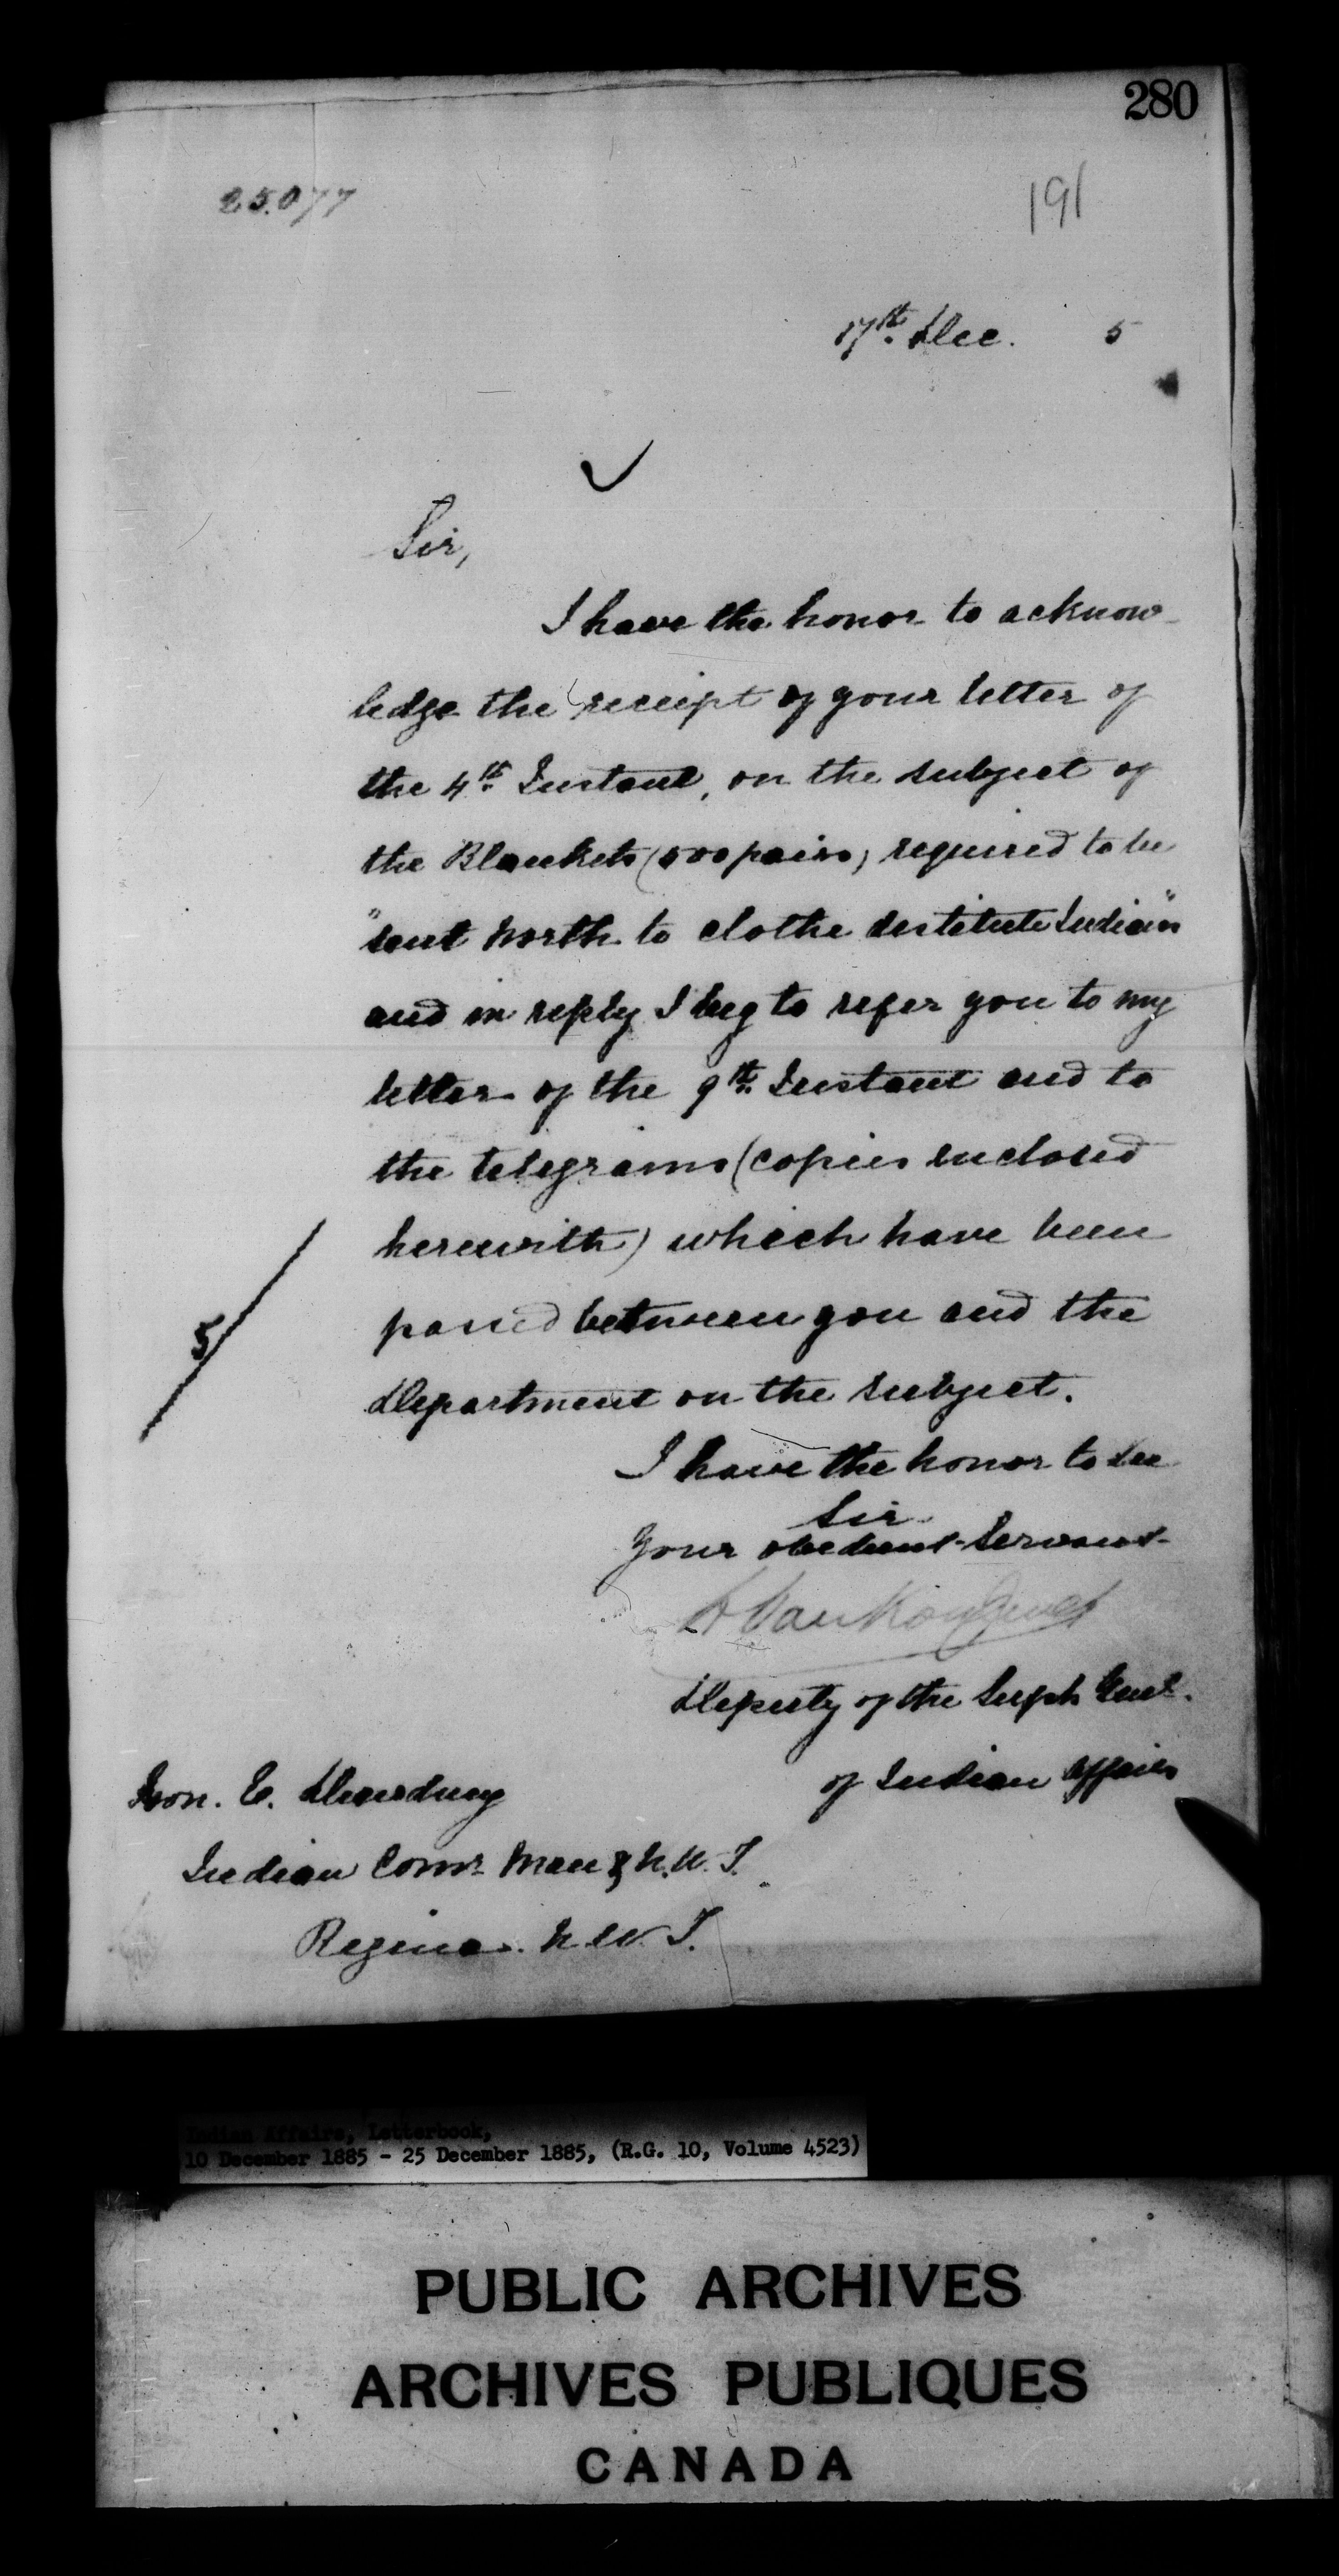 280
25.077
191
17th. Dec. 5
Sir,
I have the honor to acknow-
ledge the receipt of your letter of
the 4th. Instant, on the subject of
the Blankets (500 pairs) required to be
"sent North to clothe destitute Indians"
and in reply I beg to refer you to my
letter of the 9th. Instant and to
the telegrams (copies enclosed
herewith) which have been
5
passed between you and the
Department on the subject.
I have the honor to be
Sir
Your obedient Servant
L VanKoughnet
Deputy of the Supt. Genl.
of Indian Affairs
Hon. E. Dewdney
Indian Comr. Man & N.W.T.
Regina. N.W.T.
Indian Affairs, Letterbook,
10 December 1885 - 25 December 1885, (R.G. 10, Volume 4523)
PUBLIC ARCHIVES
ARCHIVES PUBLIQUES
CANADA